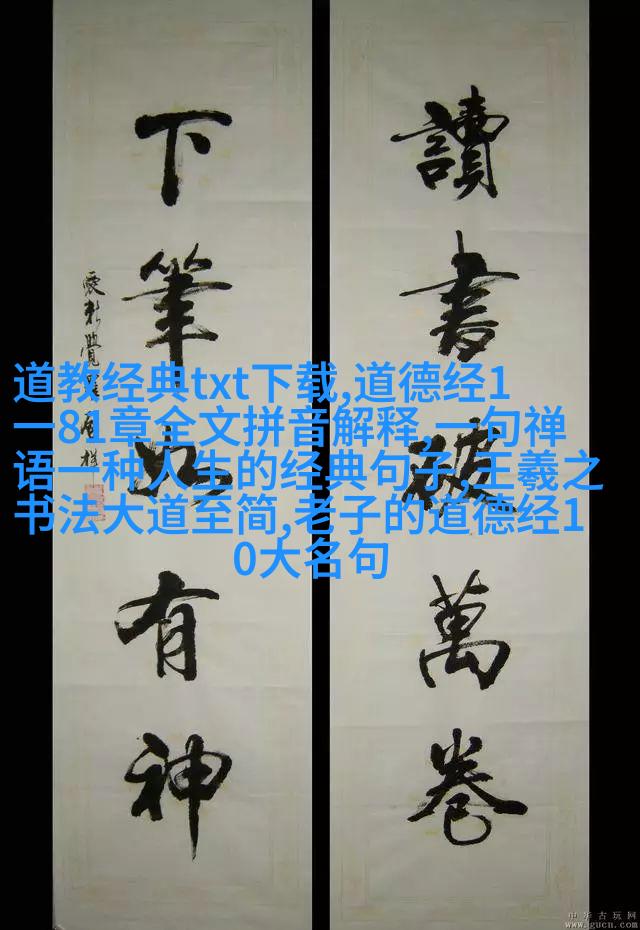 讀書破萬卷
下筆如有神
道教经典txt下载,道德经1
一81章全文拼音解释,一句禅
语一种人生的经典句子,王羲之
书法大道至简,老子的道德经1
0大名句
中华古玩网
www.gucn.com